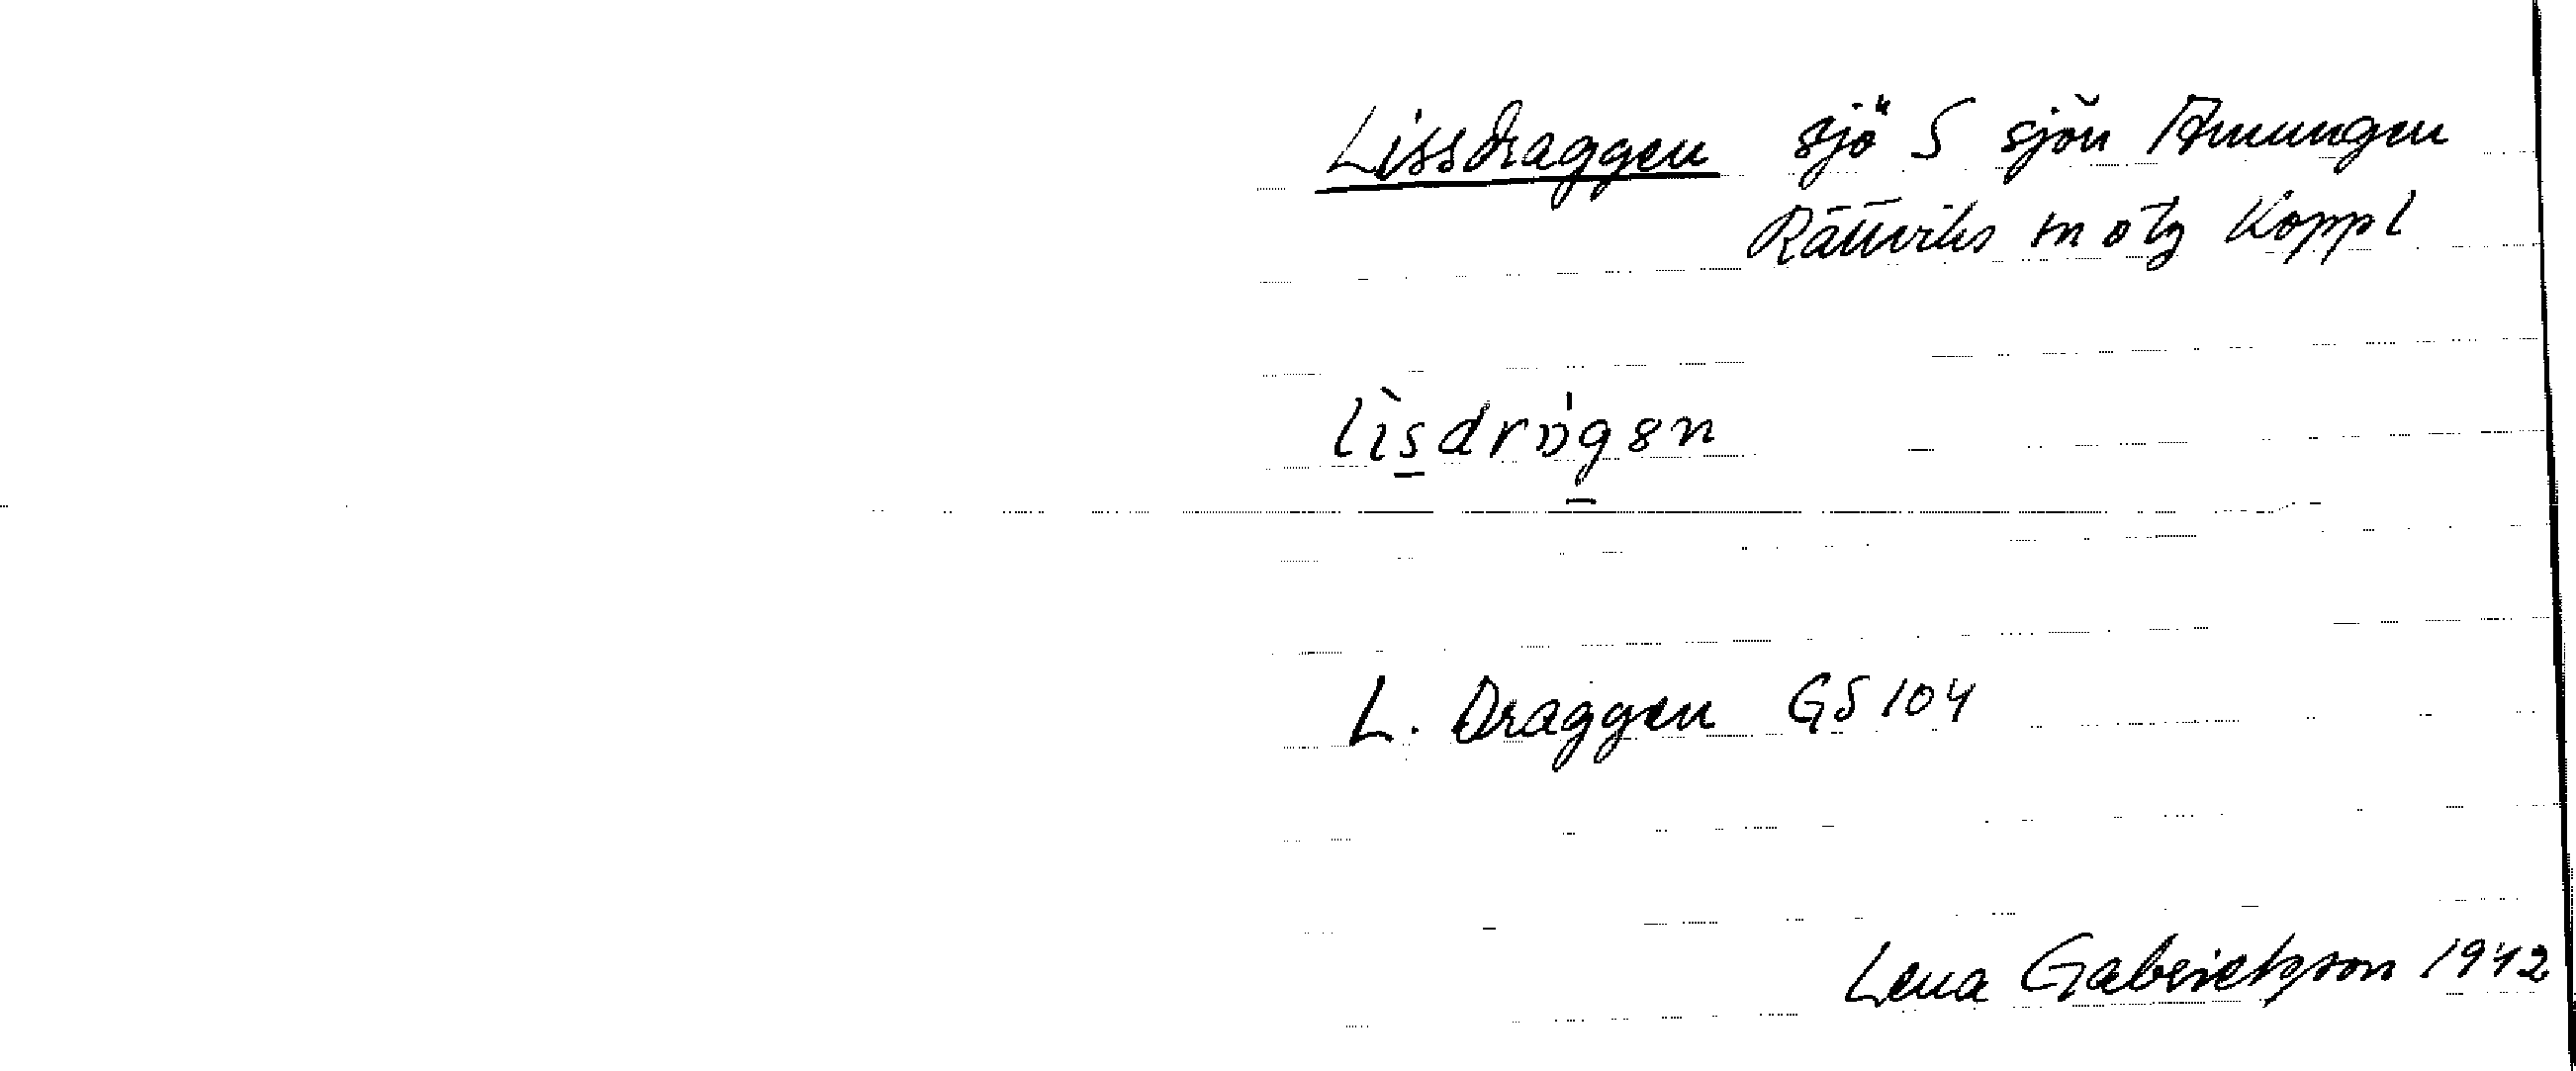 Lissdraggen sjö S sjön Amungen
Rättviks m otg Koppl
L. Draggen GS 104
Lena Gabrielsson 1942